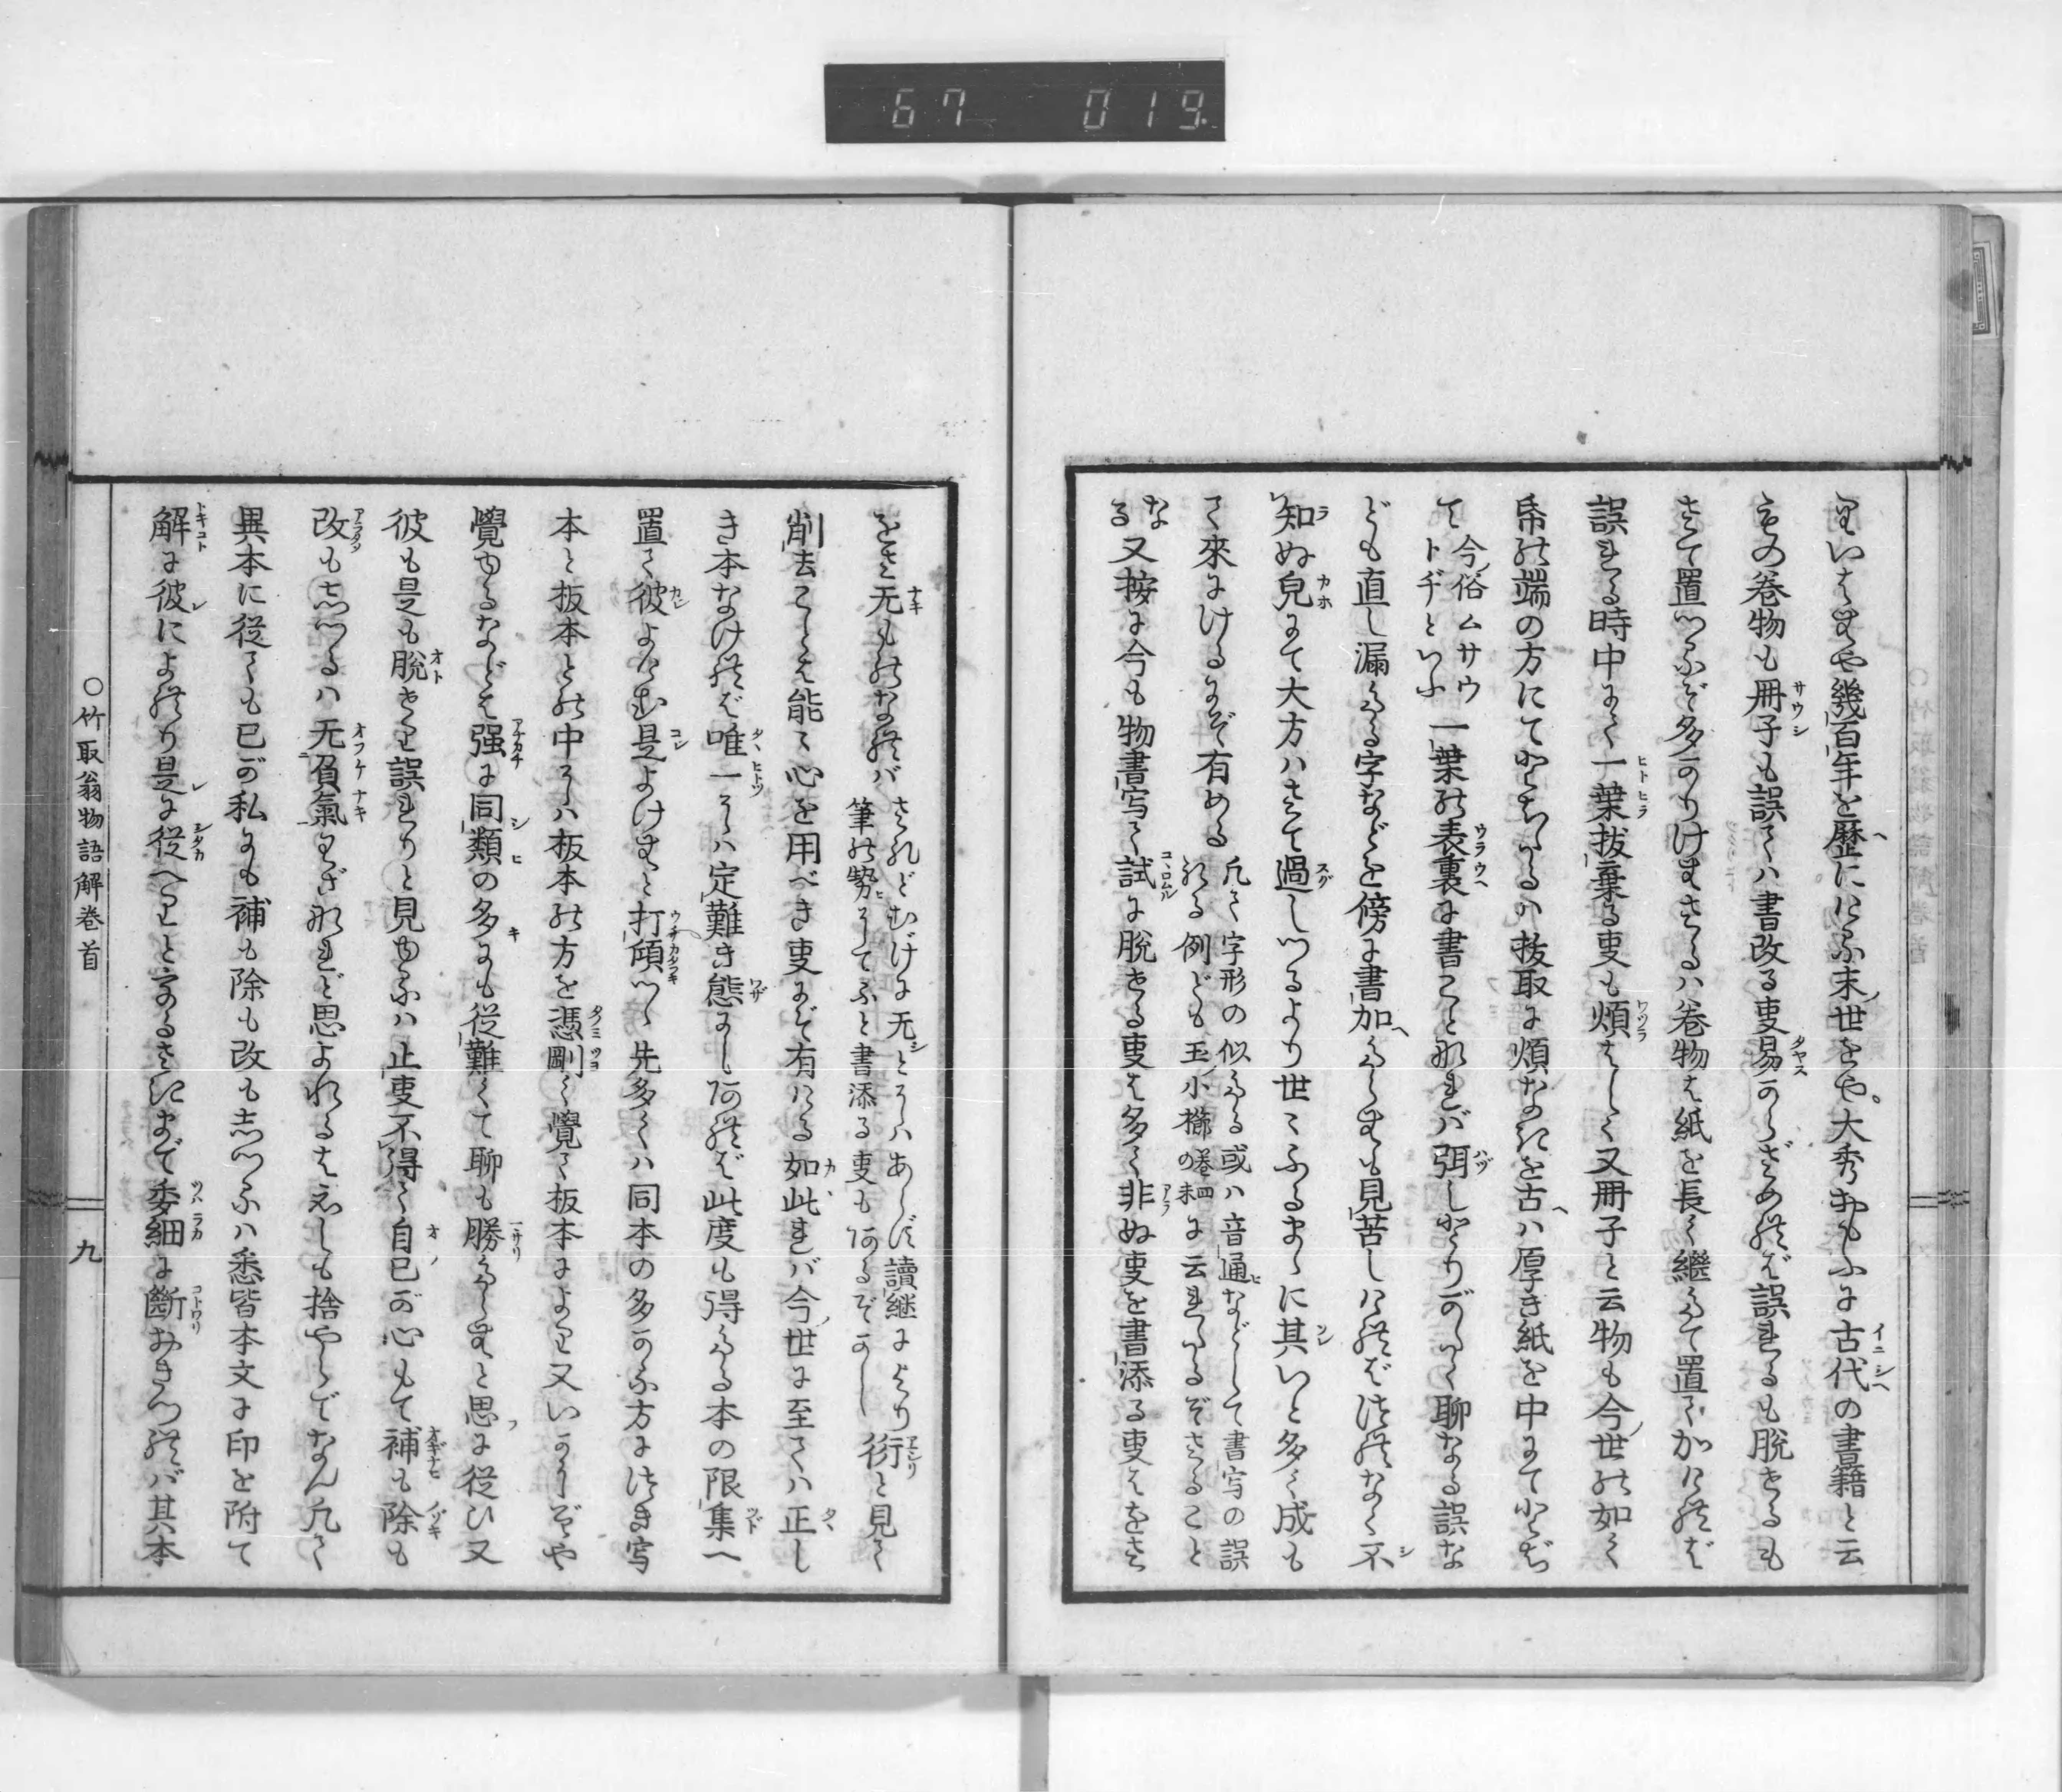 67 019
りいはむや幾百年を歴にたる末世をや。大秀おもふに古代の書籍と云
ものゝ卷物も冊子も誤ては書改る事易からざめれば誤れるも脱せるも
さて置つるぞ多かりけむさるは卷物は紙を長く繼たて置てかければ
誤れる時中にて一葉拔棄る事も煩はしく又冊子と云物も今世の如く
帋の端の方にてとぢたるは拔取に煩なきを古は厚き紙を中にてとぢ
て今俗ムサウトヂといふ一葉の表裏に書ことなれば弭しとりがたく聊なる誤な
ども直し漏たる字などを傍に書加へたらむも見苦しければ其なく不
知ぬ皃にて大方はさて過しつるより世々ふるまゝに其いと多く成も
て來にけるにぞ有める凡て字形の似たる或は音通などして書写の誤
れる例ども玉小櫛の卷四末に云れたるぞさること
なる又按に今も物書写て試に脱せる事は多く非ぬ事を書添る事はをさ
をさ无ものなればされどむげに无とにはあらず讀継により衍と見て
筆の勢にてふと書添る事もあるぞかし
削去ことは能く心を用べき事にぞ有ける如此れば今世に至ては正し
き本なければ唯一には定難き態にしあれば此度も得たる本の限集へ
置て彼よけむ是よけむと打傾つゝ先多くは同本の多かる方につき写
本と板本との中には板本の方を憑剛く覺て板本により又いかにぞや
覺ゆるなどは强に同類の多にも從難くて聊も勝たらむと思に從ひ又
彼も是も脱せり誤れりと見ゆるは止事不得て自己が心もて補も除も
改もしつるは无負氣わざなれど思よれるはえしも捨やらでなん凡て
異本に從ても己が私にも補も除も改もしつるは悉皆本文に印を附て
解に彼によれり是に從へりと言るさまで委細に斷おきつれば其本
○竹取翁物語解卷首
九